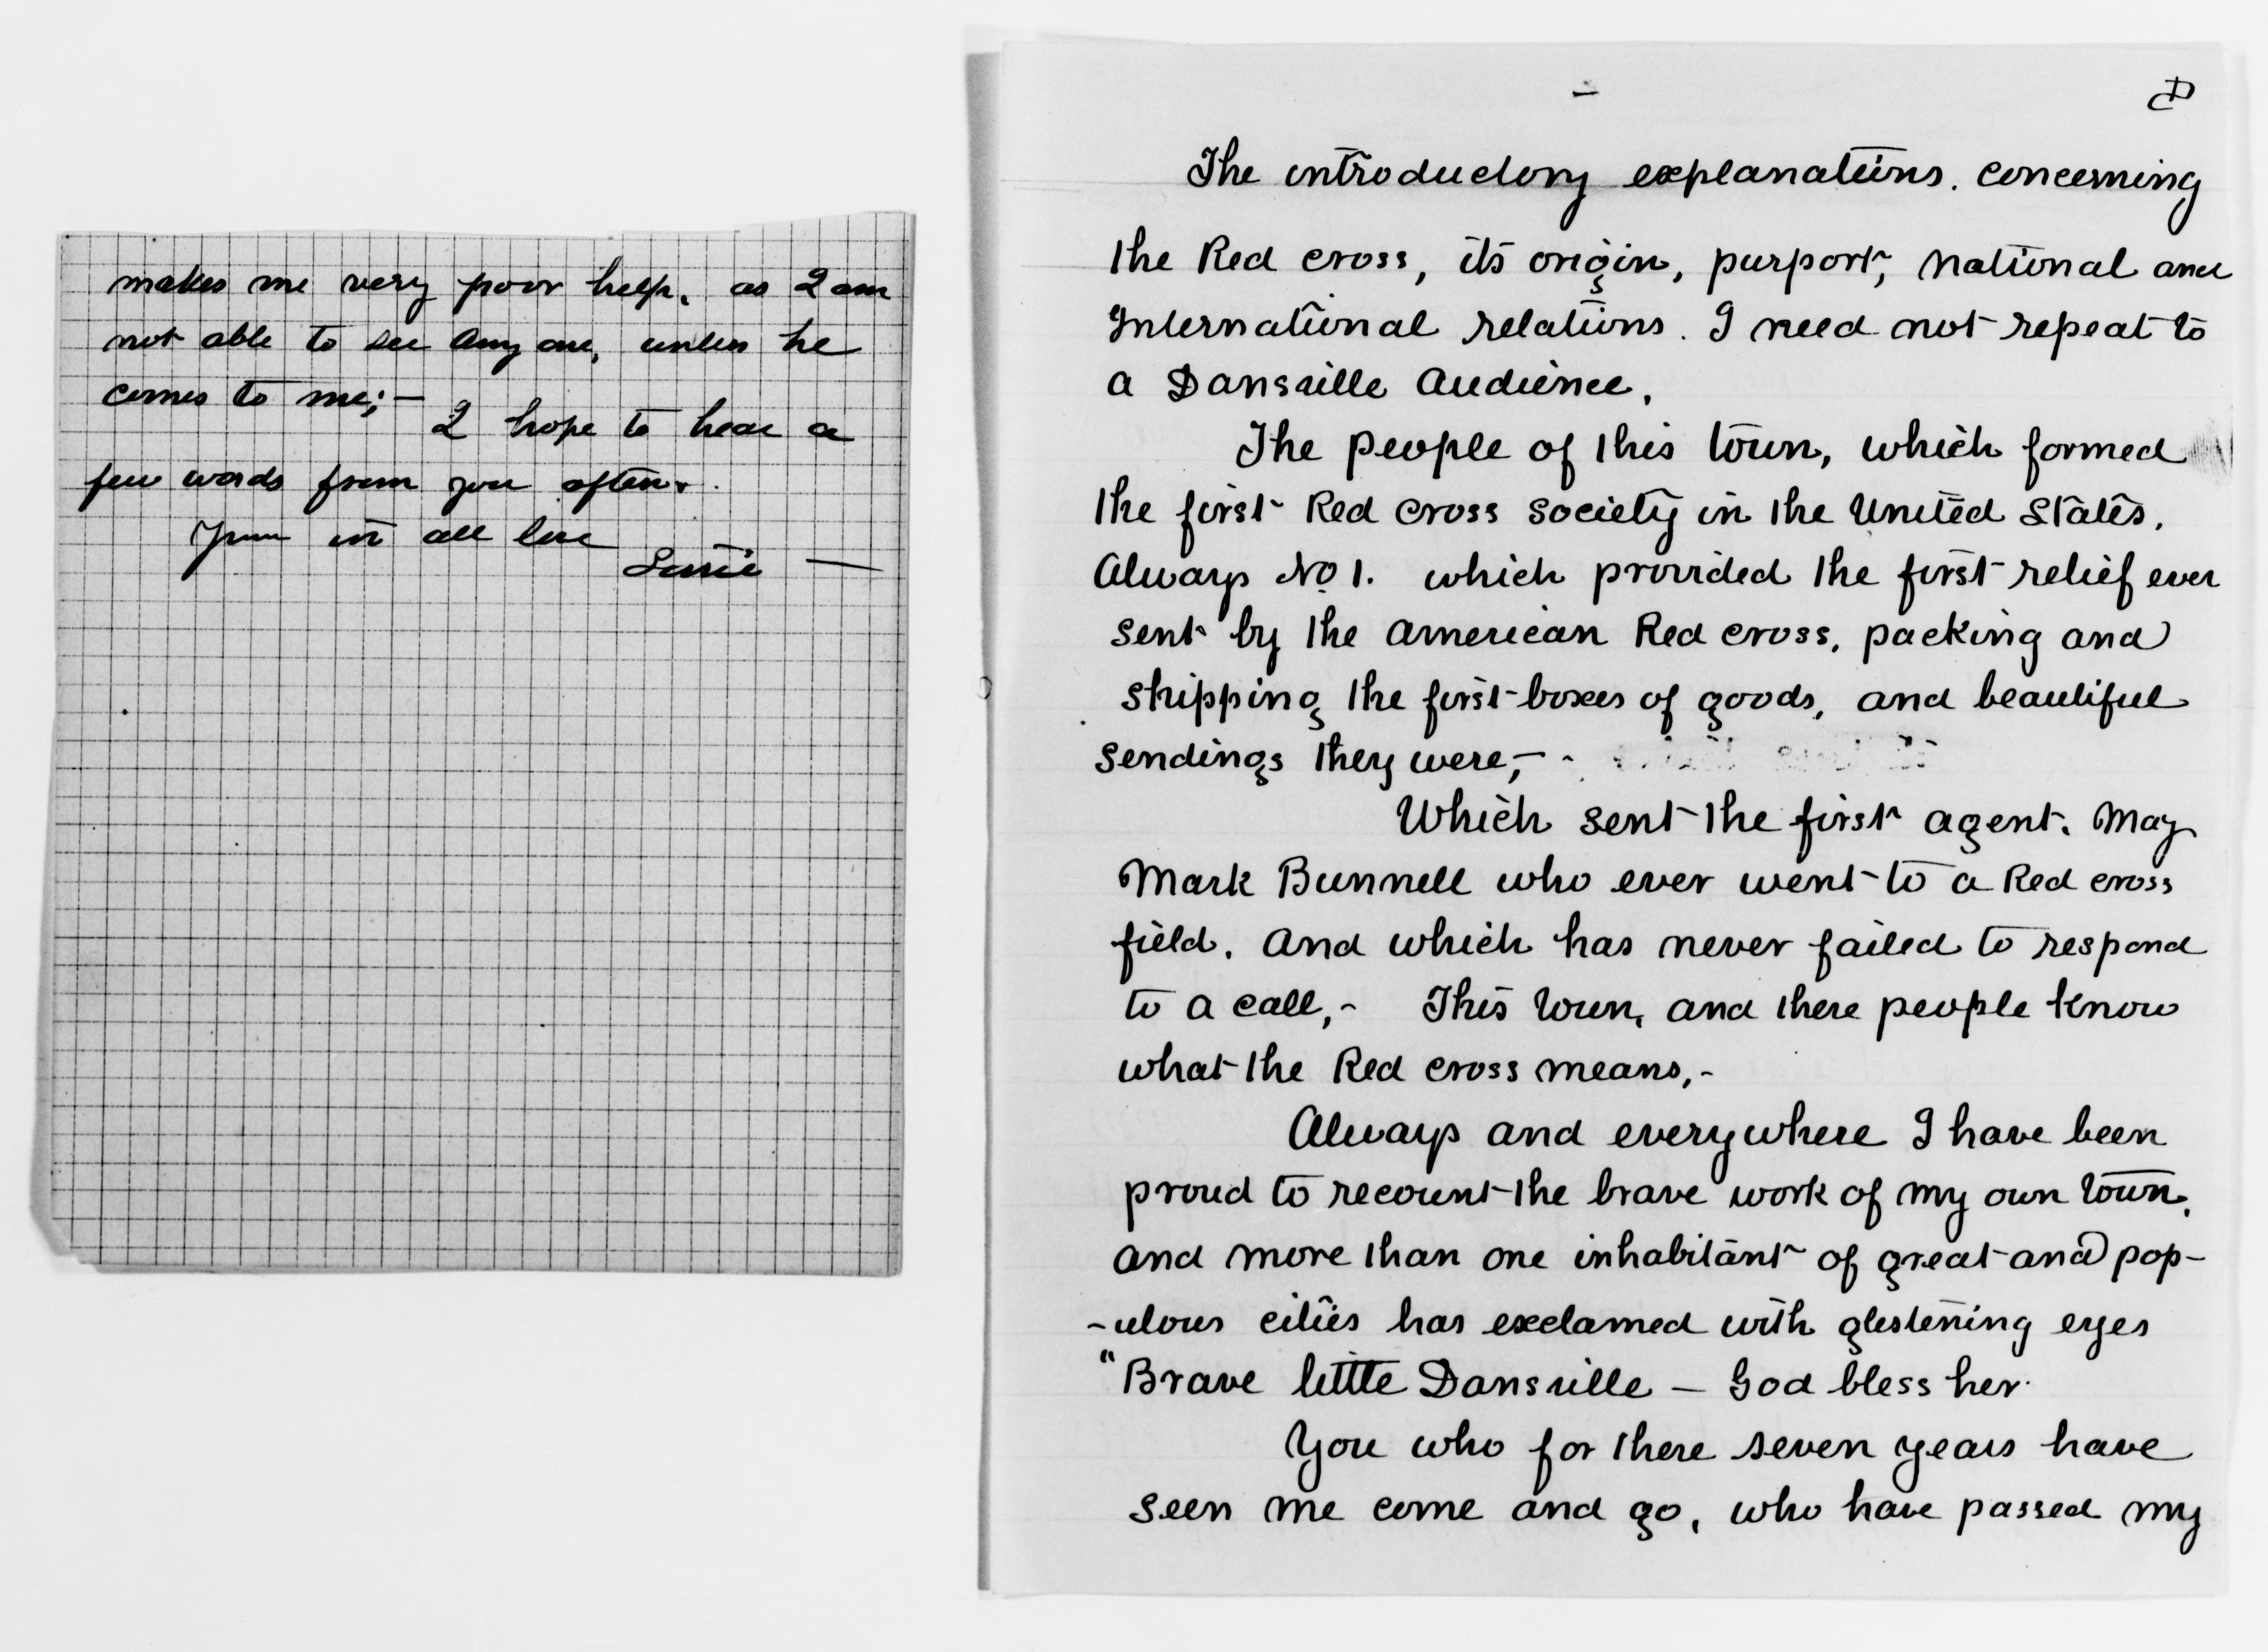 makes me very poor help, as I am
not able to see any one, unless he
comes to me; —
I hope to hear a
few words from you often.
Yours in all love
The introductory explanations. concerning
the Red cross, its origin, purport, national and
International relations. I need not repeat to
a Dansville audience.
The people of this town, which formed
the first Red cross society in the United States.
Always No 1. which provided the first relief ever
sent by the american Red cross, packing and
shipping the first boxes of goods, and beautiful
sendings they were, -
Which sent the first agent. Maj
Mark Bunnell who ever went to a Red cross
field. And which has never failed to respond
to a call, - This town, and these people know
what the Red cross means, -
Always and everywhere I have been
proud to recount the brave work of my own town.
and more than one inhabitant of great and pop-
-ulous cities has exclamed with glistening eyes
"Brave little Dansville — God bless her.
You who for these seven years have
seen me come and go, who have passed my